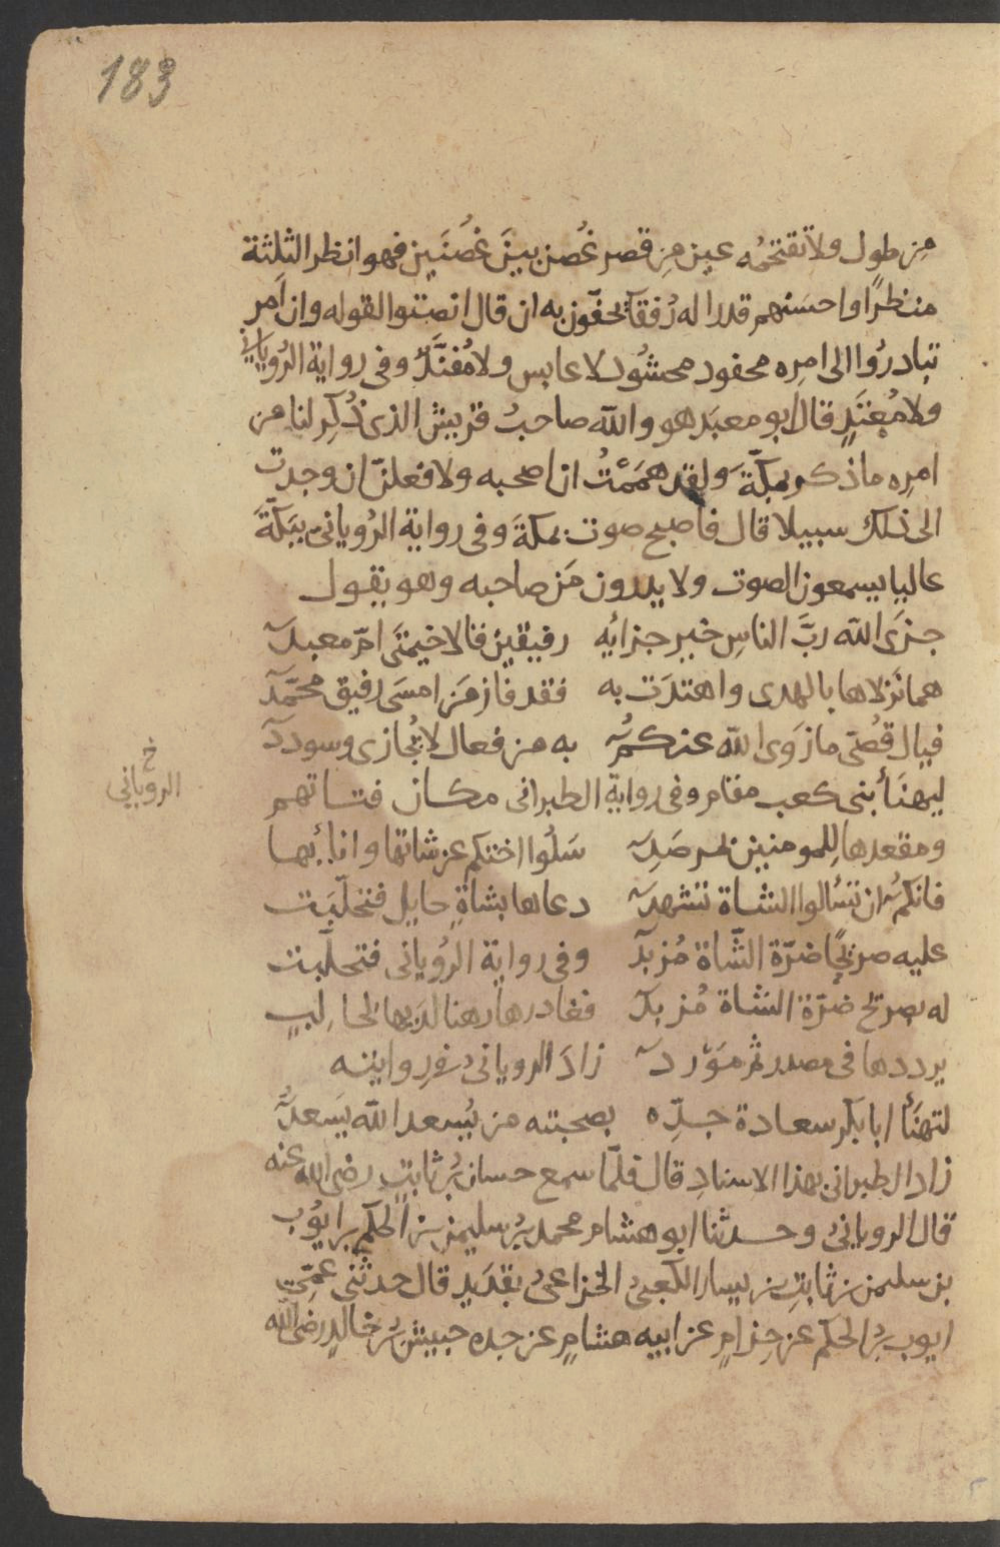 183
مِن طول ولا تقتحمُه عين مِن قصر غُصن بينَ غصُنَين فهو انظر الثلثة
منظرًا واحسَنهم قدرا له رُفقآ يحفّون به ان قال انصتوا لقوله وان اَمر
تبادرُوا الى امِره محفود محشُود لا عابس ولا مُفنَّد وفى رواية الرُوياني
ولا مُعتَدٍ قال ابو معبَد هو والله صاحبُ قريش الذى ذُكِر لنا من
امِره ماذكر بمكّةَ ولقد هَمَمْتُ ان اصحبه ولافعلنّ ان وجدت
الى ذلك سبيلا قال فاصبح صوت بمكةَ وفى رواية الرُويانى ببَكّةَ
عاليا يسمعون الصوت ولا يدرون مَن صاحبه وهو يقول
جزَى الله ربَّ الناسِ خير جزائِه رفيقين قالا خيمتَى امّ معبد
هما نَزلاها بالهدى واهتدَت به فقد فاز مَن امسَى رفيق محمّد
فيال قُصَّى ما زَوى الله عنكمُ به من فعال لا تُجازى وسودد
خ
الروياني
ليهنَأ بنى كعب مقام وفى رواية الطبرانى مكان فتاتهم
ومقعدها للمومنين بمرصَدِ سَلُوا اختكم عن شاتها وانائِها
فانكمُ ان تسُالوا الشاة تشهد دعاها بشاةٍ حايل فتحلّبَت
عليه صريحًا ضرّة الشّاة مُزبد وفى رواية الرُويانى فتحلّبت
له بصريح ضرّة الشاة مُزبد فغادرها رهنا لدَيها لحالبٍ
يرددها فى مصدر ثم مَوْرد زادَ الرويانىُ فى روايته
لتهنَأ ابا بكر سعادة جدِّه بصحبته من يُسعد الله يَسعد
زاد الطبرانى بهذا الاسنادِ قال فلمّا سمع حسان بنُ ثابتٍ رضى الله عنه
قال الرويانىُ وحدثنا ابو هشام محمد بنُ سليمن بن الحكم بن ايوُب
بن سليمن بن ثابتِ بن يسار الكعبىُ الخزاعىُ بقدَيد قال حدثنى عمّى
ايوب بنُ الحكم عن حِزامٍ عن ابيه هشامٍ عن جده حبيش بنُ خالدٍ رضى الله